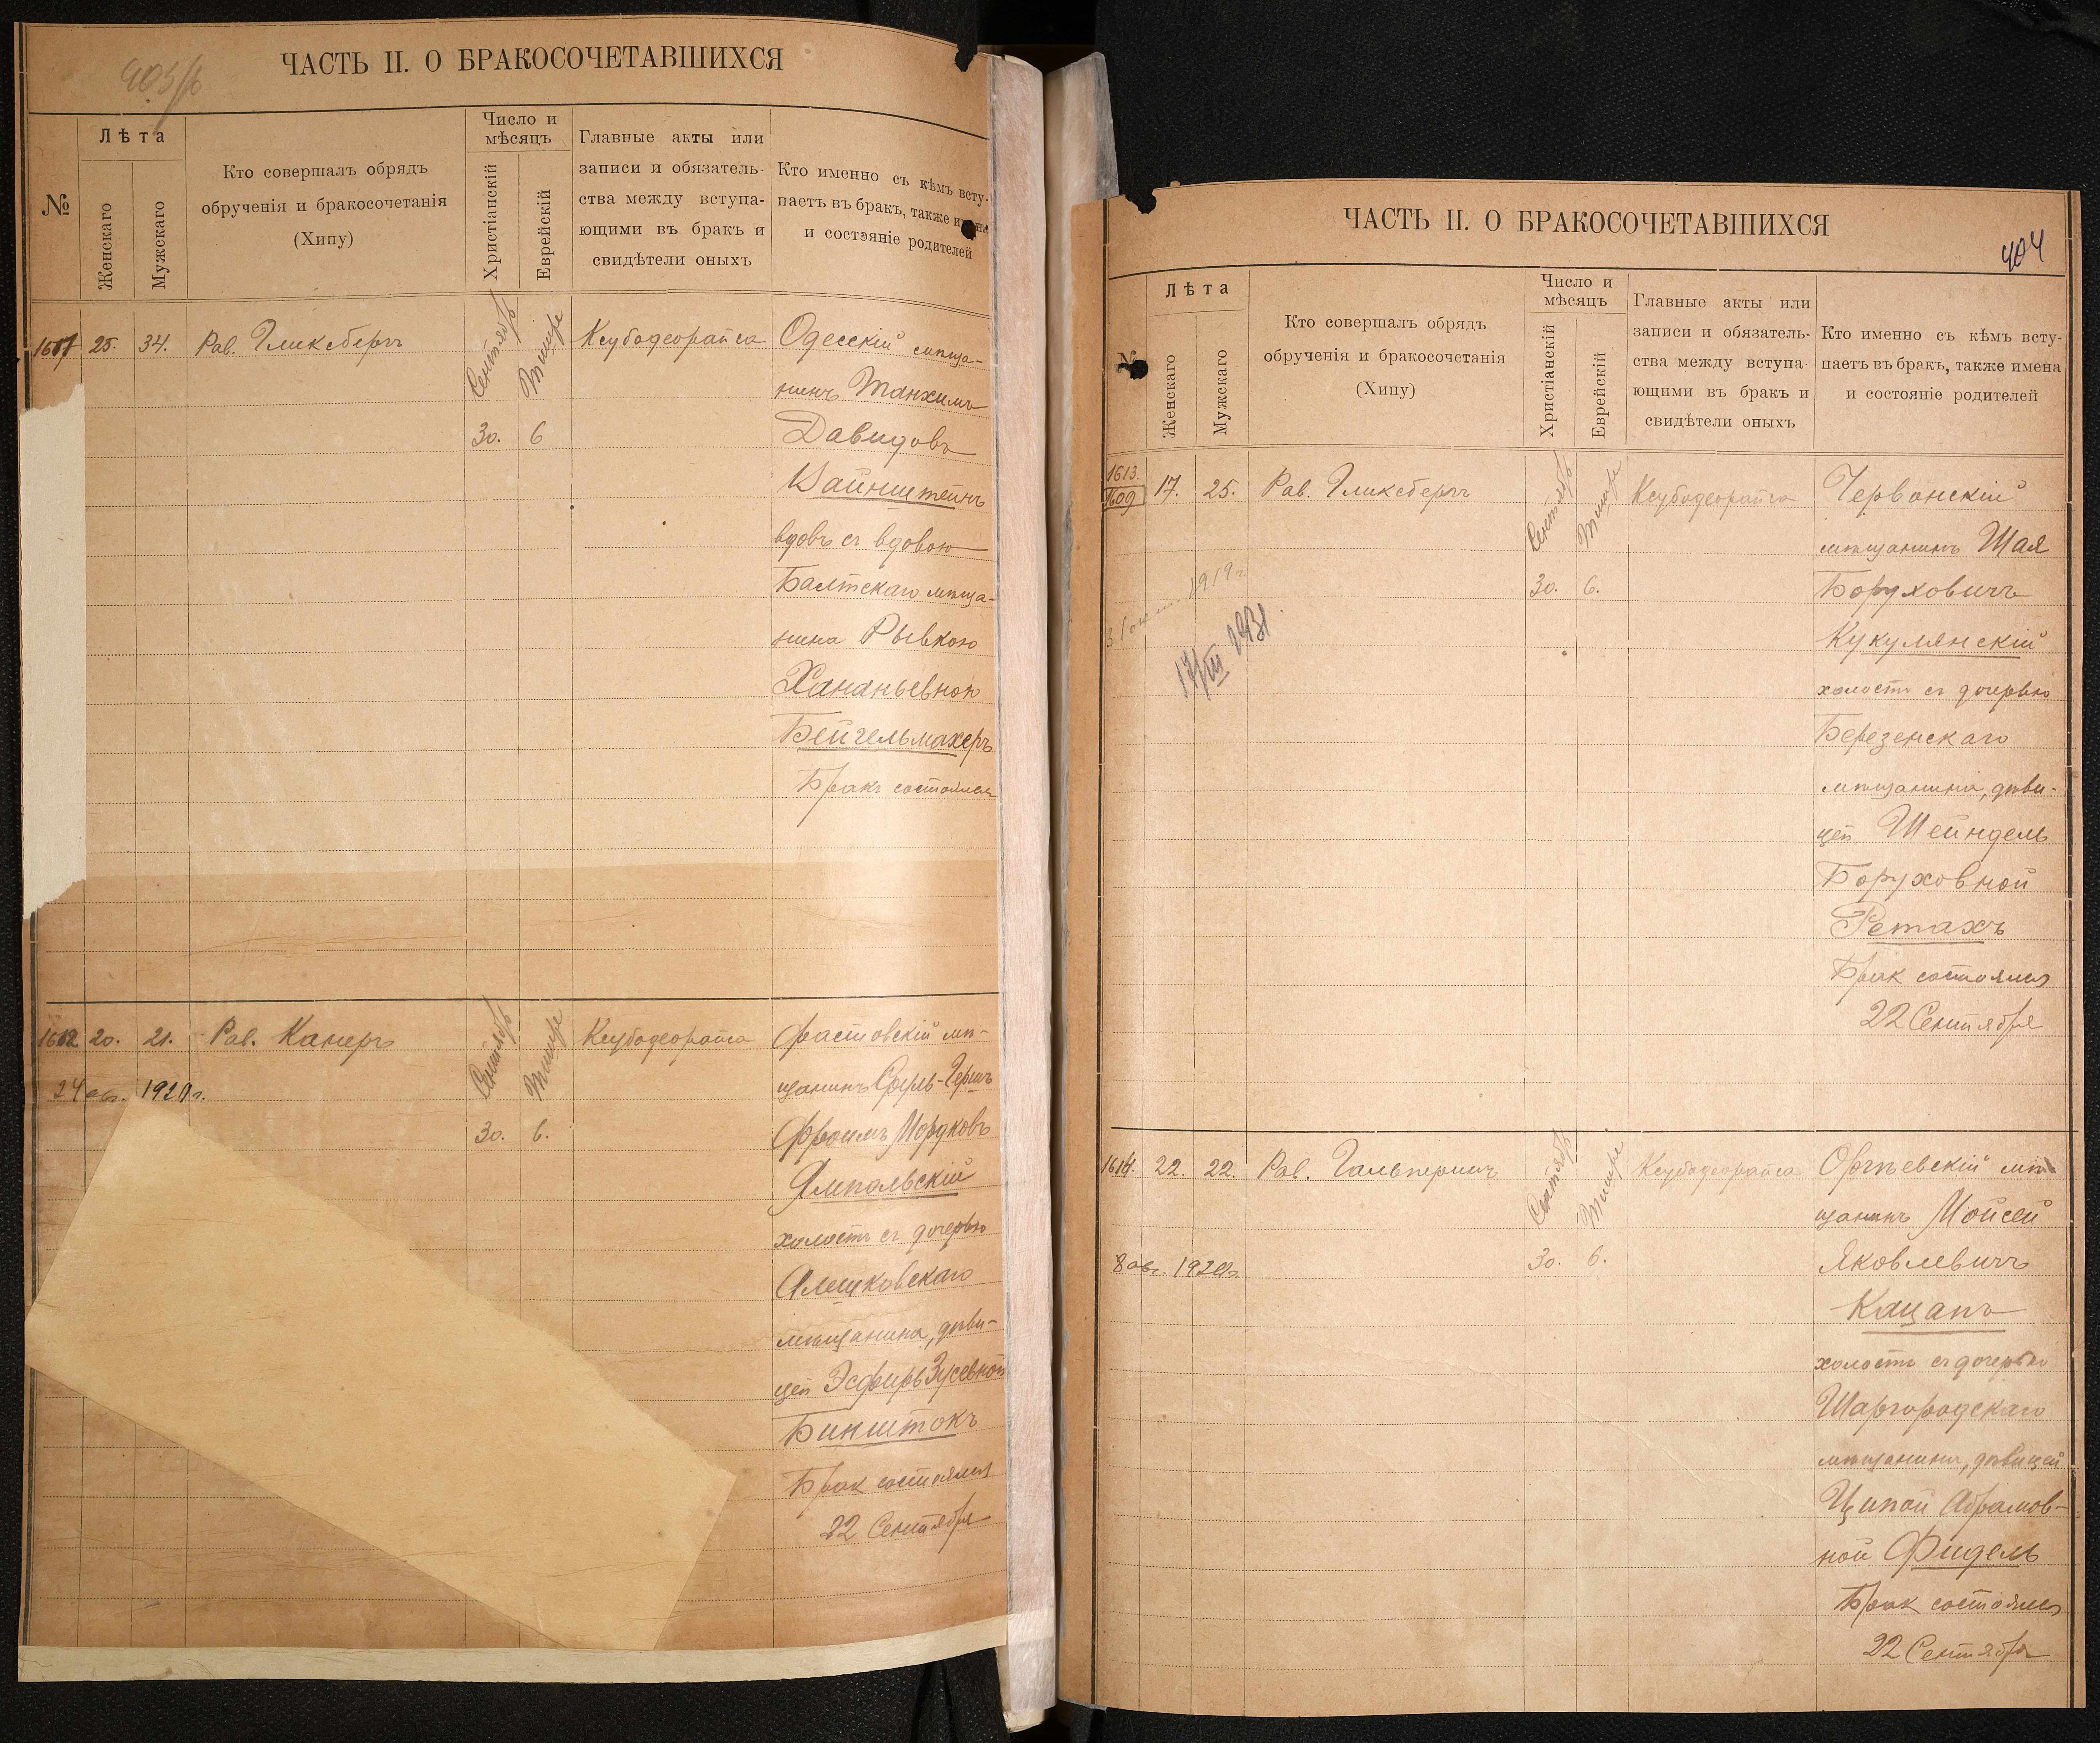 ЧАСТЬ II. О БРАКОСОЧЕТАВШИХСЯ
№
Лѣта
Женскаго
Мужскаго
Кто совершалъ обрядъ
обрученія и бракосочетанія
(Хипу)
Число и
мѣсяцъ
Христіанскій
Еврейскій
Главные акты или
записи и обязатель-
ства между вступа-
ющими въ бракъ и
свидѣтели оныхъ
Кто именно съ кѣмъ всту-
паетъ въ бракъ, также
и состэяніе родителей
25. 34. Рав. Гликсбергъ Сентябрь Тишре Ксубодеорайса Одесскій мѣща-
нинъ Танхимъ
30. 6 Давидовъ
Вайнштейнъ
вдовъ съ вдовою
Балтскаго мѣща-
нина Рывкою
Хананьевной
Бейгельмахеръ
Бракъ состоялся
20. 21. Рав. Канеръ Сентябрь Тишре Ксубодеорайса Фастовскій мѣ-
24 авг. 1920 г. щанинъ Сруль-Гершъ
30. 6. Фроимъ Мордковъ
Ямпольскій
холостъ съ дочерью
Алешковскаго
мѣщанина, дѣви-
цей Эсфирь Зусевной
Бинштокъ
Брак состоялся
22 Сентября
ЧАСТЬ II. О БРАКОСОЧЕТАВШИХСЯ
404
№
Лѣта
Женскаго
Мужскаго
Кто совершалъ обрядъ
обрученія и бракосочетанія
(Хипу)
Число и
мѣсяцъ
Христіанскій
Еврейскій
Главные акты или
записи и обязатель-
ства между вступа-
ющими въ бракъ и
свидѣтели оныхъ
Кто именно съ кѣмъ всту-
паетъ въ бракъ, также имена
и состояніе родителей
1613.
1609 17. 25. Рав. Гликсбергъ Сентябрь Тишре Ксубодеорайса Червонскій
мѣщанинъ Шая
1919 г. 30. 6. Боруховичъ
17/III 1931 Кукулянскій
холостъ съ дочерью
Березенскаго
мѣщанина, дѣви-
цей Шейндель
Боруховной
Ретахъ
Брак состоялся
22 Сентября
1614. 22. 22. Рав. Гальперинъ Сентябрь Тишре Ксубодеорайса Оргѣевскій мѣ-
щанинъ Мойсей
8 авг. 1920 г. 30. 6. Яковлевичъ
Кацапъ
холостъ съ дочерью
Шаргородскаго
мѣщанина, дѣвицей
Ципой Абрамов-
ной Фидель
Брак состоялся
22 Сентября